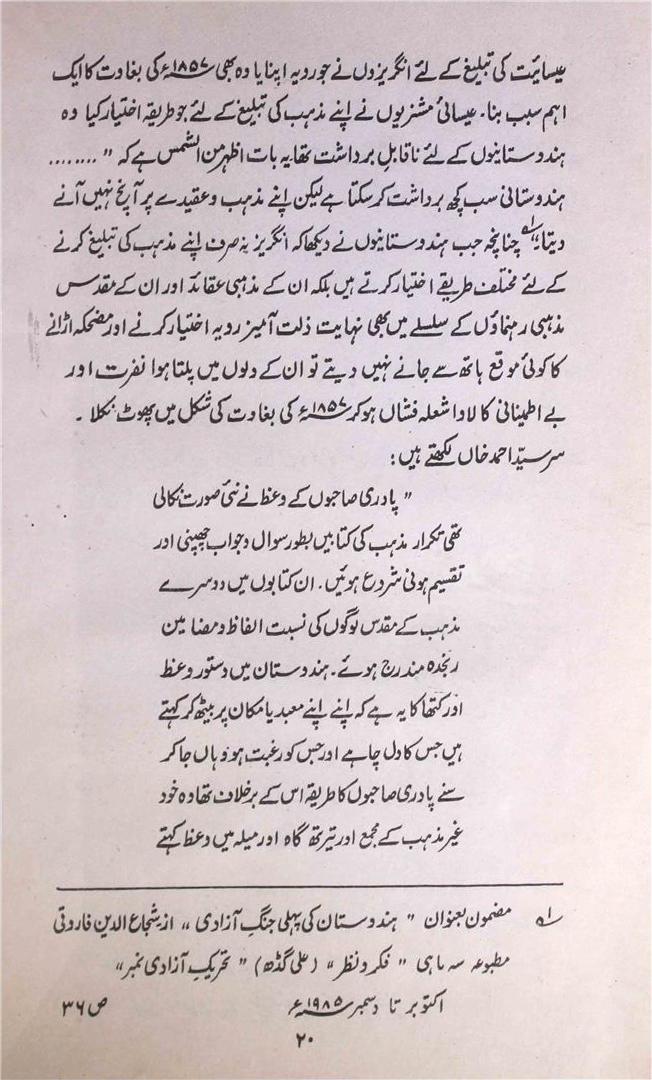 عیسائیت کی تبلیغ کے لئے انگریزوں نے جو رویہ اپنایا وہ بھی ۱۸۵۷ء کی بغاوت کا ایک
اہم سبب بنا۔ عیسائی مشنریوں نے اپنے مذہب کی تبلیغ کے لئے جو طریقہ اختیار کیا وہ
ہندوستانیوں کے لئے ناقابلِ برداشت تھا یہ بات اظہر من الشمس ہے کہ " ........
ہندوستانی سب کچھ برداشت کر سکتا ہے لیکن اپنے مذہب و عقیدے پر آنچ نہیں آنے
دیتا"۱؎ چنانچہ جب ہندوستانیوں نے دیکھا کہ انگریز نہ صرف اپنے مذہب کی تبلیغ کرنے
کے لئے مختلف طریقے اختیار کرتے ہیں بلکہ ان کے مذہبی عقائد اور ان کے مقدس
مذہبی رہنماؤں کے سلسلے میں بھی نہایت ذلت آمیز رویہ اختیار کرنے اور مضحکہ اڑانے
کا کوئی موقع ہاتھ سے جانے نہیں دیتے تو ان کے دلوں میں پلتا ہوا نفرت اور
بے اطمینانی کا لاوا شعلہ فشاں ہو کر ۱۸۵۷ء کی بغاوت کی شکل میں پھوٹ نکلا۔
سر سیّد احمد خاں لکھتے ہیں:
" پادری صاحبوں کے وعظ نے نئی صورت نکالی
تھی تکرار مذہب کی کتابیں بطور سوال و جواب چھپنی اور
تقسیم ہونی شروع ہوئیں۔ ان کتابوں میں دوسرے
مذہب کے مقدس لوگوں کی نسبت الفاظ و مضامین
رنجدہ مندرج ہوئے۔ ہندوستان میں دستور وعظ
اور کتھا کا یہ ہے کہ اپنے اپنے معبد یا مکان پر بیٹھ کر کہتے
ہیں جس کا دل چاہے اور جس کو رغبت ہو وہاں جا کر
سنے پادری صاحبوں کا طریقہ اس کے برخلاف تھا وہ خود
غیر مذہب کے مجمع اور تیرتھ گاہ اور میلہ میں وعظ کہتے
۱؎ مضمون بعنوان " ہندوستان کی پہلی جنگِ آزادی " از شجاع الدین فاروقی
مطبوعہ سہ ماہی " فکر و نظر " (علی گڈھ) " تحریکِ آزادی نمبر "
اکتوبر تا دسمبر ۱۹۸۵ء ص ۳۶
۲۰